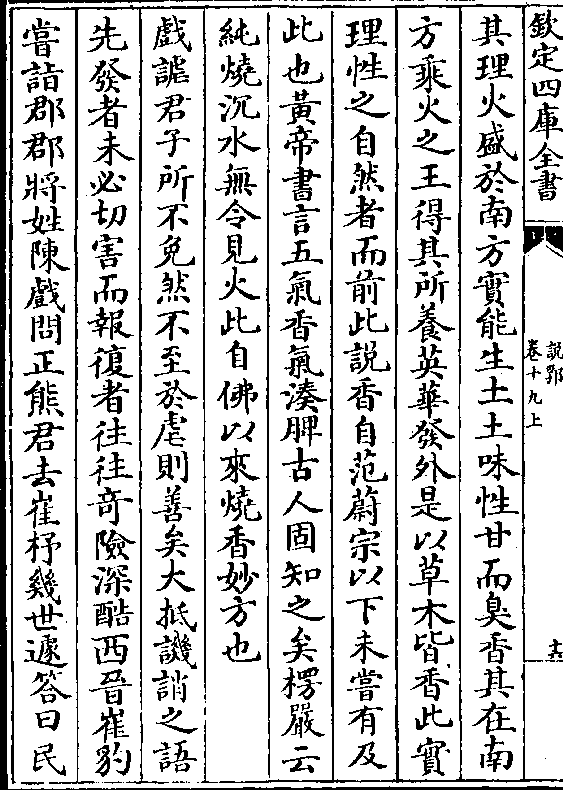 欽定四庫全書
說郛
卷十九上
十六
其理火盛於南方實能生土土味性甘而臭香其在南
方乘火之王得其所養英華發外是以草木皆香此實
理性之自然者而前此説香自范蔚宗以下未嘗有及
此也黃帝書言五氣香氣湊脾古人固知之矣楞嚴云
純燒沉水無令見火此自佛以來燒香妙方也
戲謔君子所不免然不至於虐則善矣大抵譏誚之語
先發者未必切害而報復者往往奇險深酷西晉崔豹
嘗詣郡郡將姓陳戲問正熊君去崔杼幾世遽答曰民